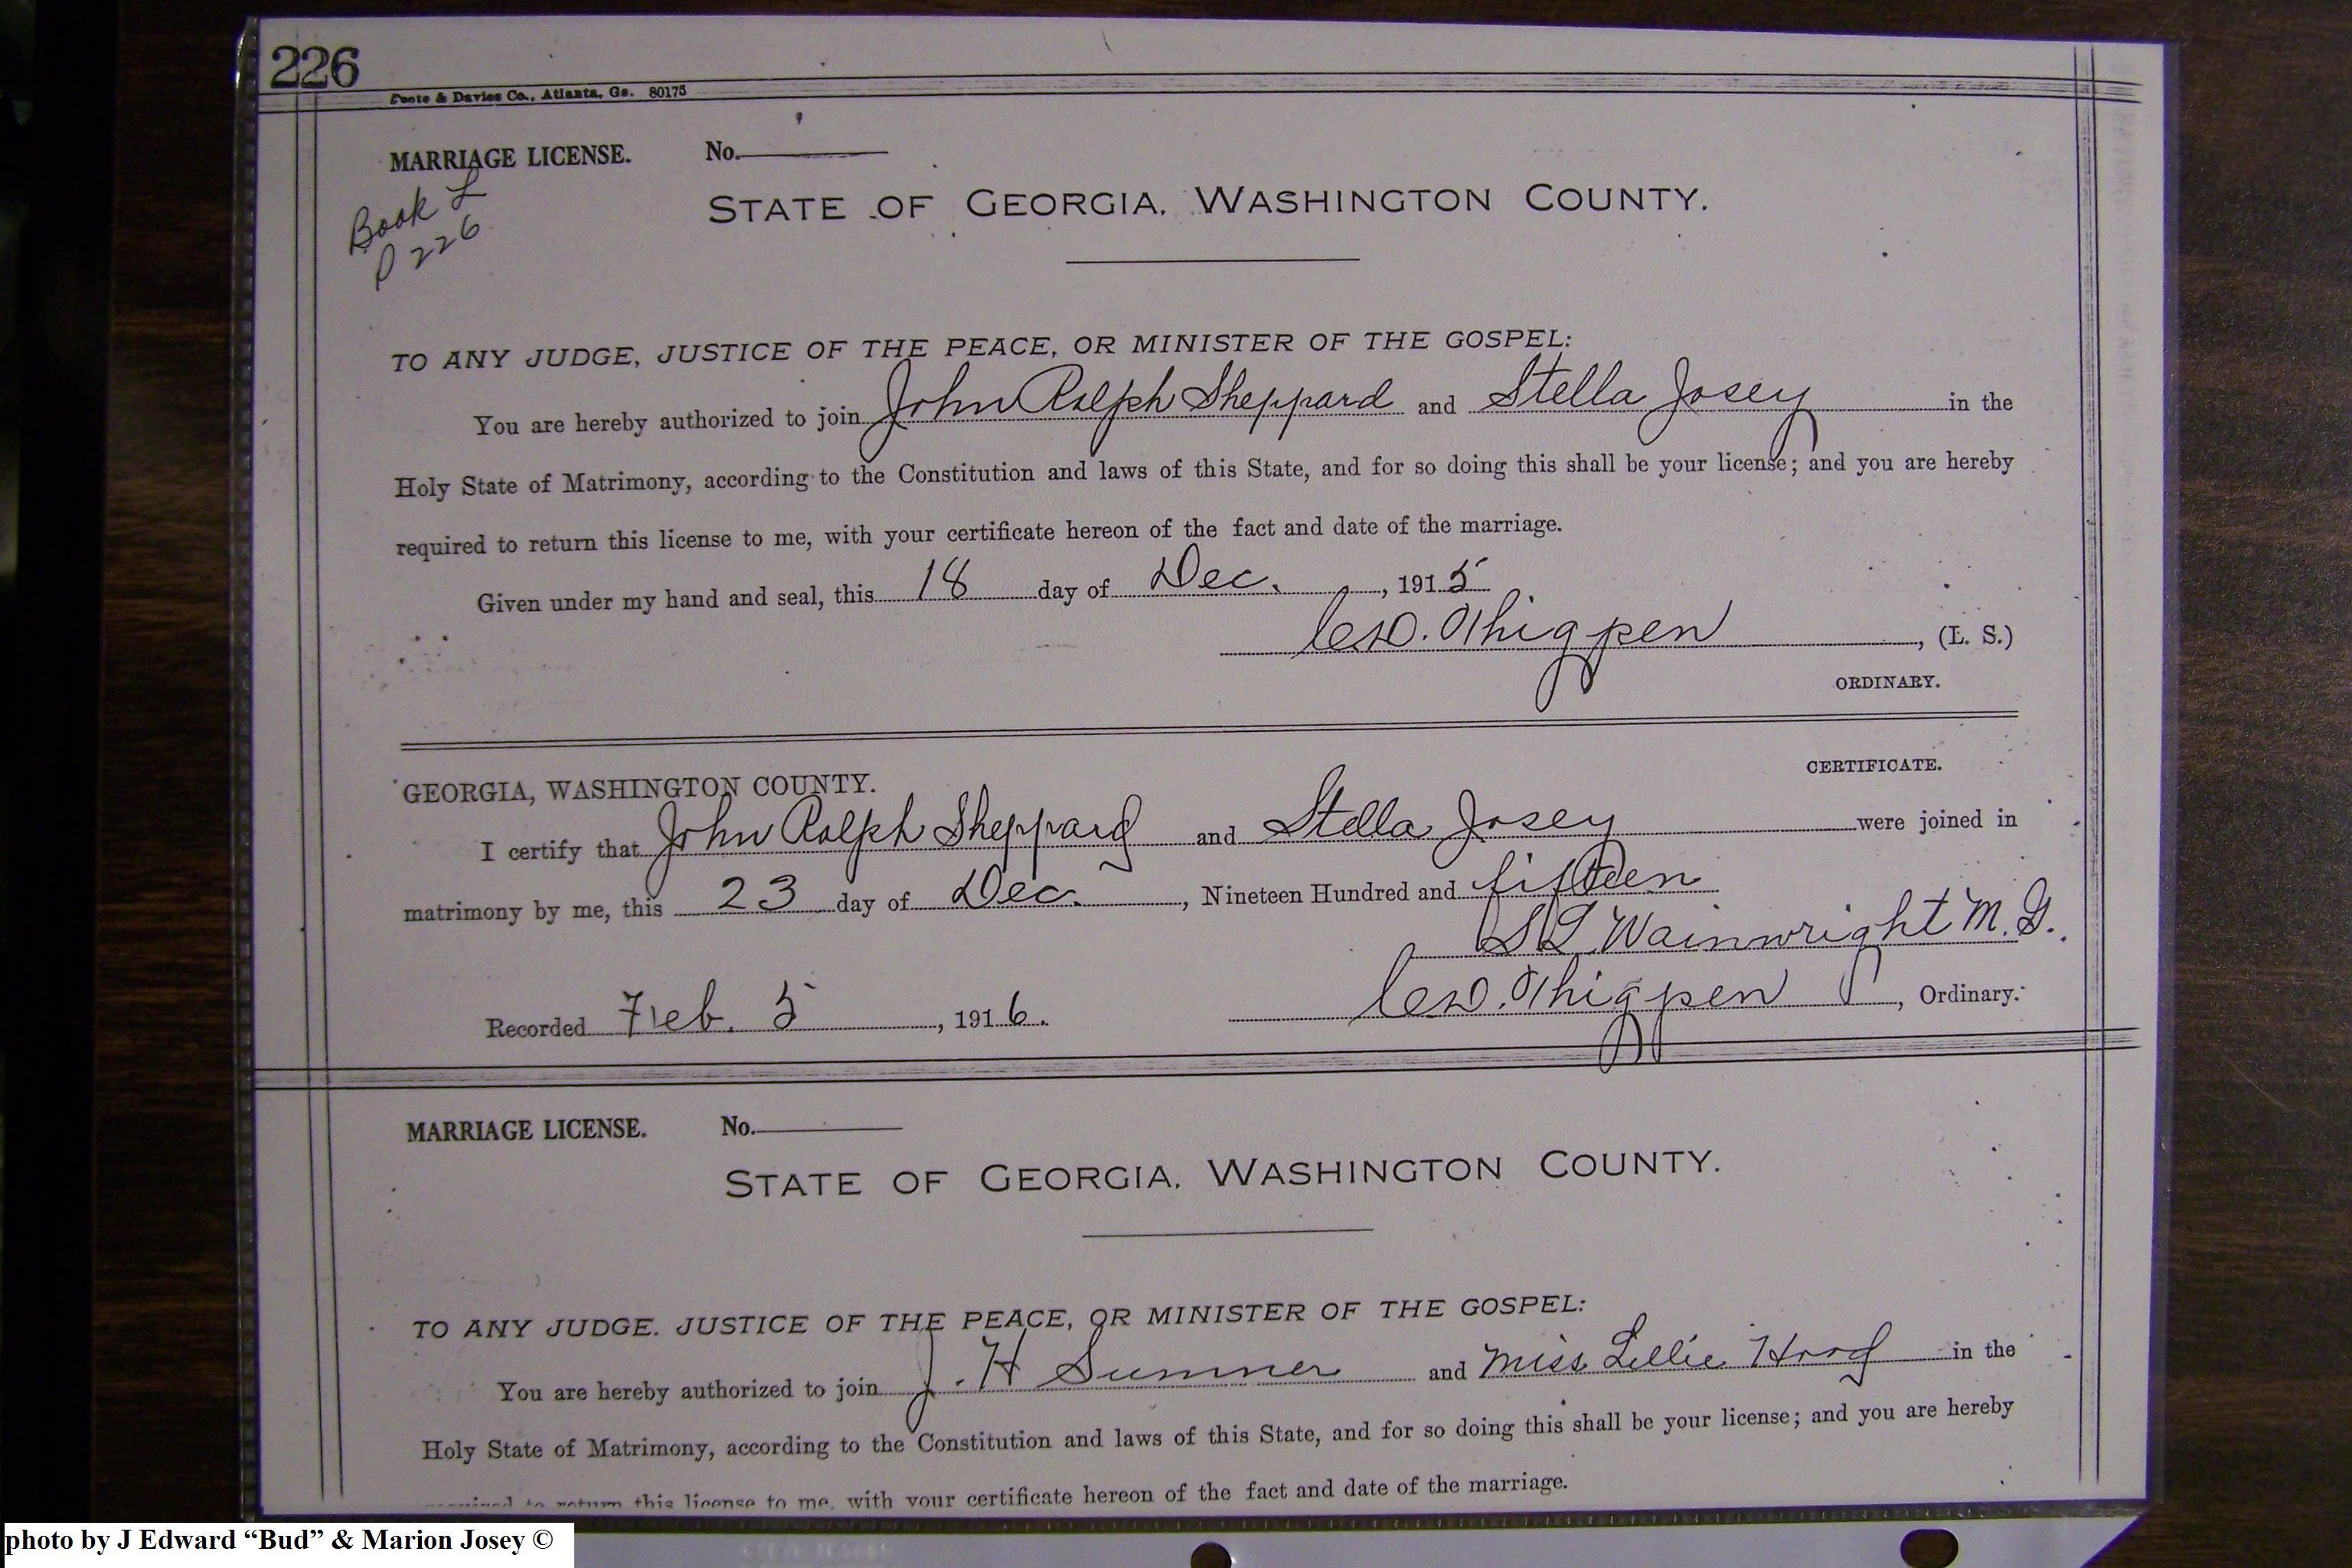 226
Foote & Davies Co., Atlanta, Ga. 80175
MARRIAGE LICENSE. No.
Book L
P 226
STATE OF GEORGIA, WASHINGTON COUNTY.
TO ANY JUDGE, JUSTICE OF THE PEACE, OR MINISTER OF THE GOSPEL:
You are hereby authorized to join John Ralph Sheppard and Stella Josey in the
Holy State of Matrimony, according to the Constitution and laws of this State, and for so doing this shall be your license; and you are hereby
required to return this license to me, with your certificate hereon of the fact and date of the marriage.
Given under my hand and seal, this 18 day of Dec., 1915
Thigpen, (L. S.)
ORDINARY.
CERTIFICATE.
GEORGIA, WASHINGTON COUNTY.
I certify that John Ralph Sheppard and Stella Josey were joined in
matrimony by me, this 23 day of Dec., Nineteen Hundred and fifteen
S L Wainwright M. G.
Thigpen, Ordinary.
Recorded Feb. 5, 1916.
MARRIAGE LICENSE. No.
STATE OF GEORGIA. WASHINGTON COUNTY.
TO ANY JUDGE. JUSTICE OF THE PEACE, OR MINISTER OF THE GOSPEL:
You are hereby authorized to join J. H Sumner and Miss Lillie Hood in the
Holy State of Matrimony, according to the Constitution and laws of this State, and for so doing this shall be your license; and you are hereby
required to return this license to me, with your certificate hereon of the fact and date of the marriage.
photo by J Edward “Bud” & Marion Josey ©